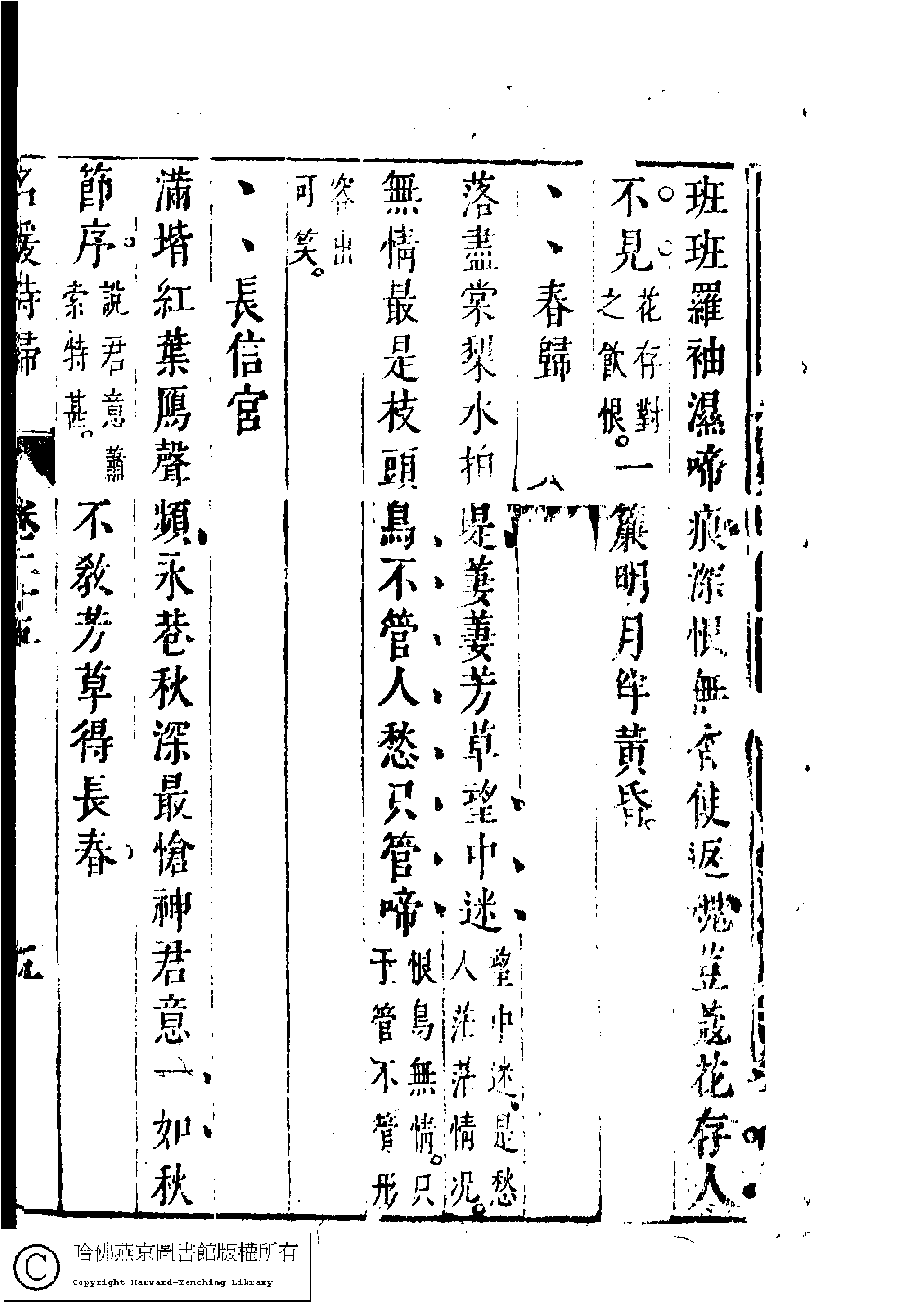 班班羅袖濕啼痕深恨無香使返魂荳蔻花存人
不見花存對之飲恨。一簾明月伴黃昏
春歸
落盡棠梨水拍堤萋萋芳草望中迷望中迷是愁人茫茫情况。
無情最是枝頭鳥不管人愁只管啼恨鳥無情。只于管不管形
容出可笑。
長信宮
滿堦紅葉鴈聲頻永巷秋深最愴神君意一如秋
節序。說君意蕭索特甚。不教芳草得長春
名媛詩歸
卷二十五
哈佛燕京圖書館版權所有
Copyright Harvard-Yenching Library